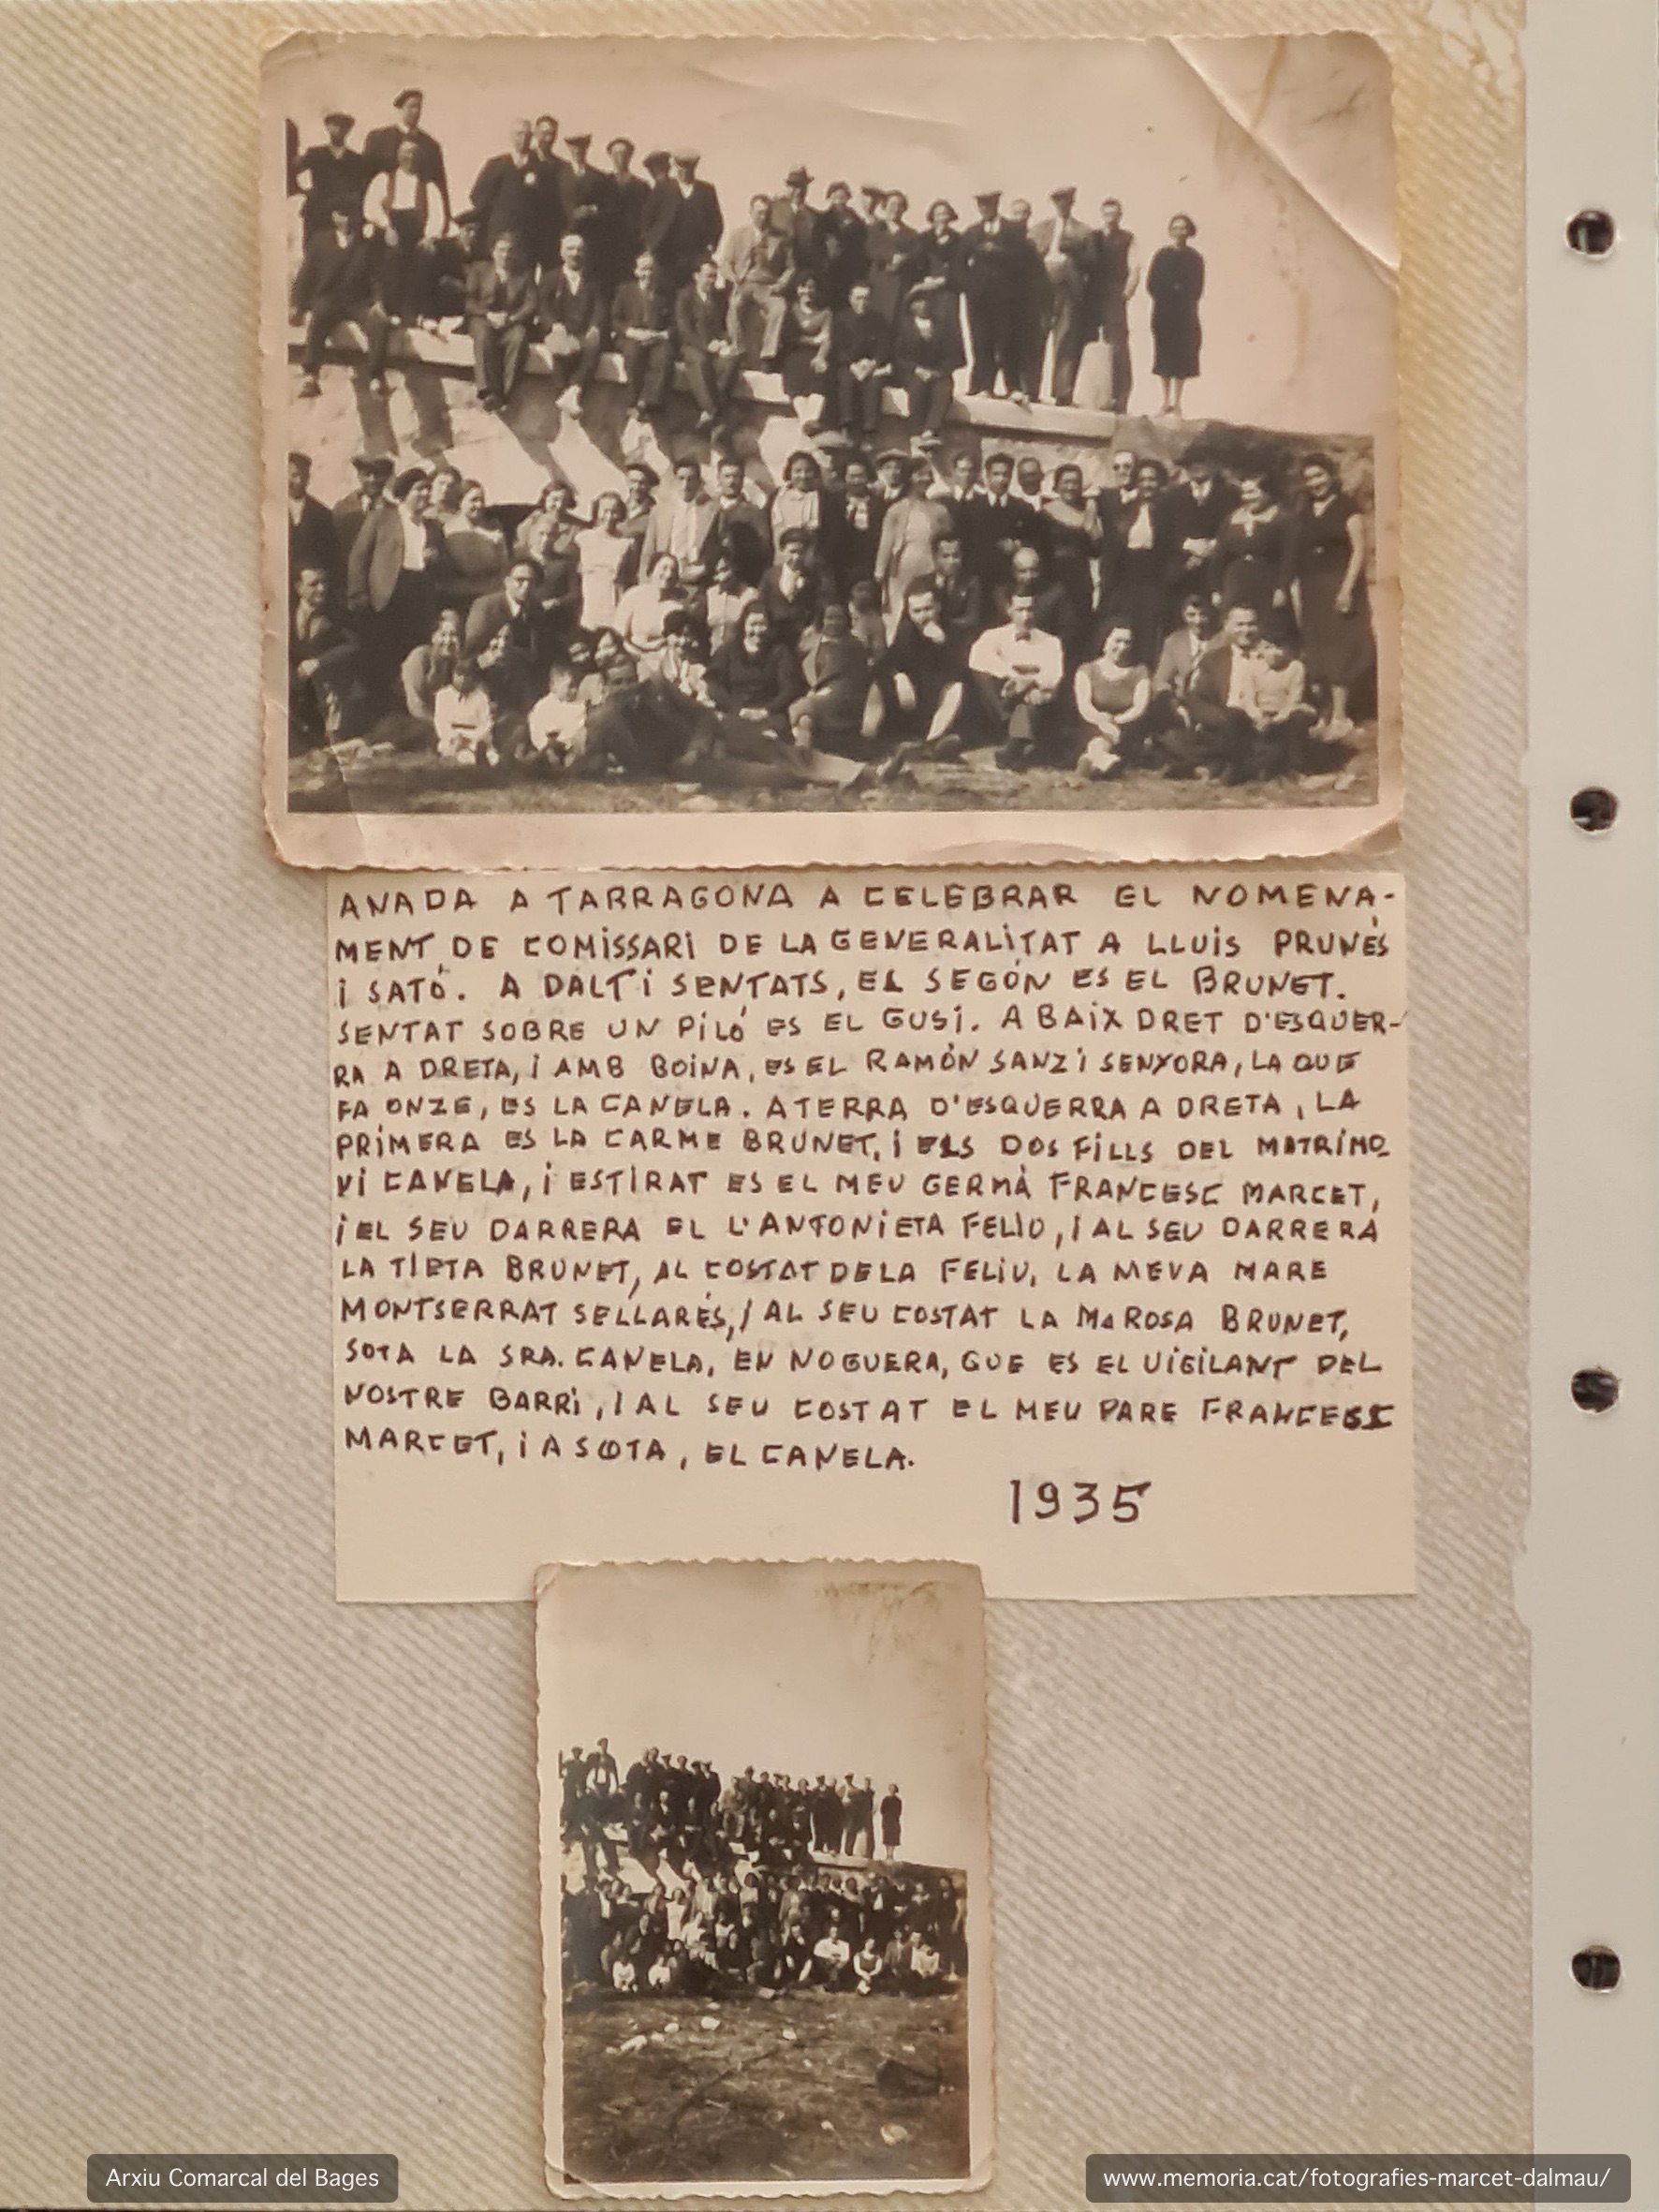 ANADA A TARRAGONA A CELEBRAR EL NOMENA-
MENT DE COMISSARI DE LA GENERALITAT A LLUIS PRUNÉS
I SATÓ. A DALT I SENTATS, EL SEGÓN ES EL BRUNET.
SENTAT SOBRE UN PILÓ ES EL GUSI. A BAIX DRET D'ESQUER-
RA A DRETA, I AMB BOINA, ES EL RAMÓN SANZ I SENYORA, LA QUE
FA ONZE, ES LA CANELA. A TERRA D'ESQUERRA A DRETA, LA
PRIMERA ES LA CARME BRUNET, I ELS DOS FILLS DEL MATRIMO
NI CANELA, I ESTIRAT ES EL MEU GERMÀ FRANCESC MARCET,
I EL SEU DARRERA EL L'ANTONIETA FELIU, I AL SEU DARRERA
LA TIETA BRUNET, AL COSTAT DE LA FELIU, LA MEVA MARE
MONTSERRAT SELLARÉS, I AL SEU COSTAT LA Mª ROSA BRUNET,
SOTA LA SRA. CANELA, EN NOGUERA, QUE ES EL VIGILANT DEL
NOSTRE BARRI, I AL SEU COSTAT EL MEU PARE FRANCESC
MARCET, I A SOTA, EL CANELA.
1935
Arxiu Comarcal del Bages
www.memoria.cat/fotografies-marcet-dalmau/